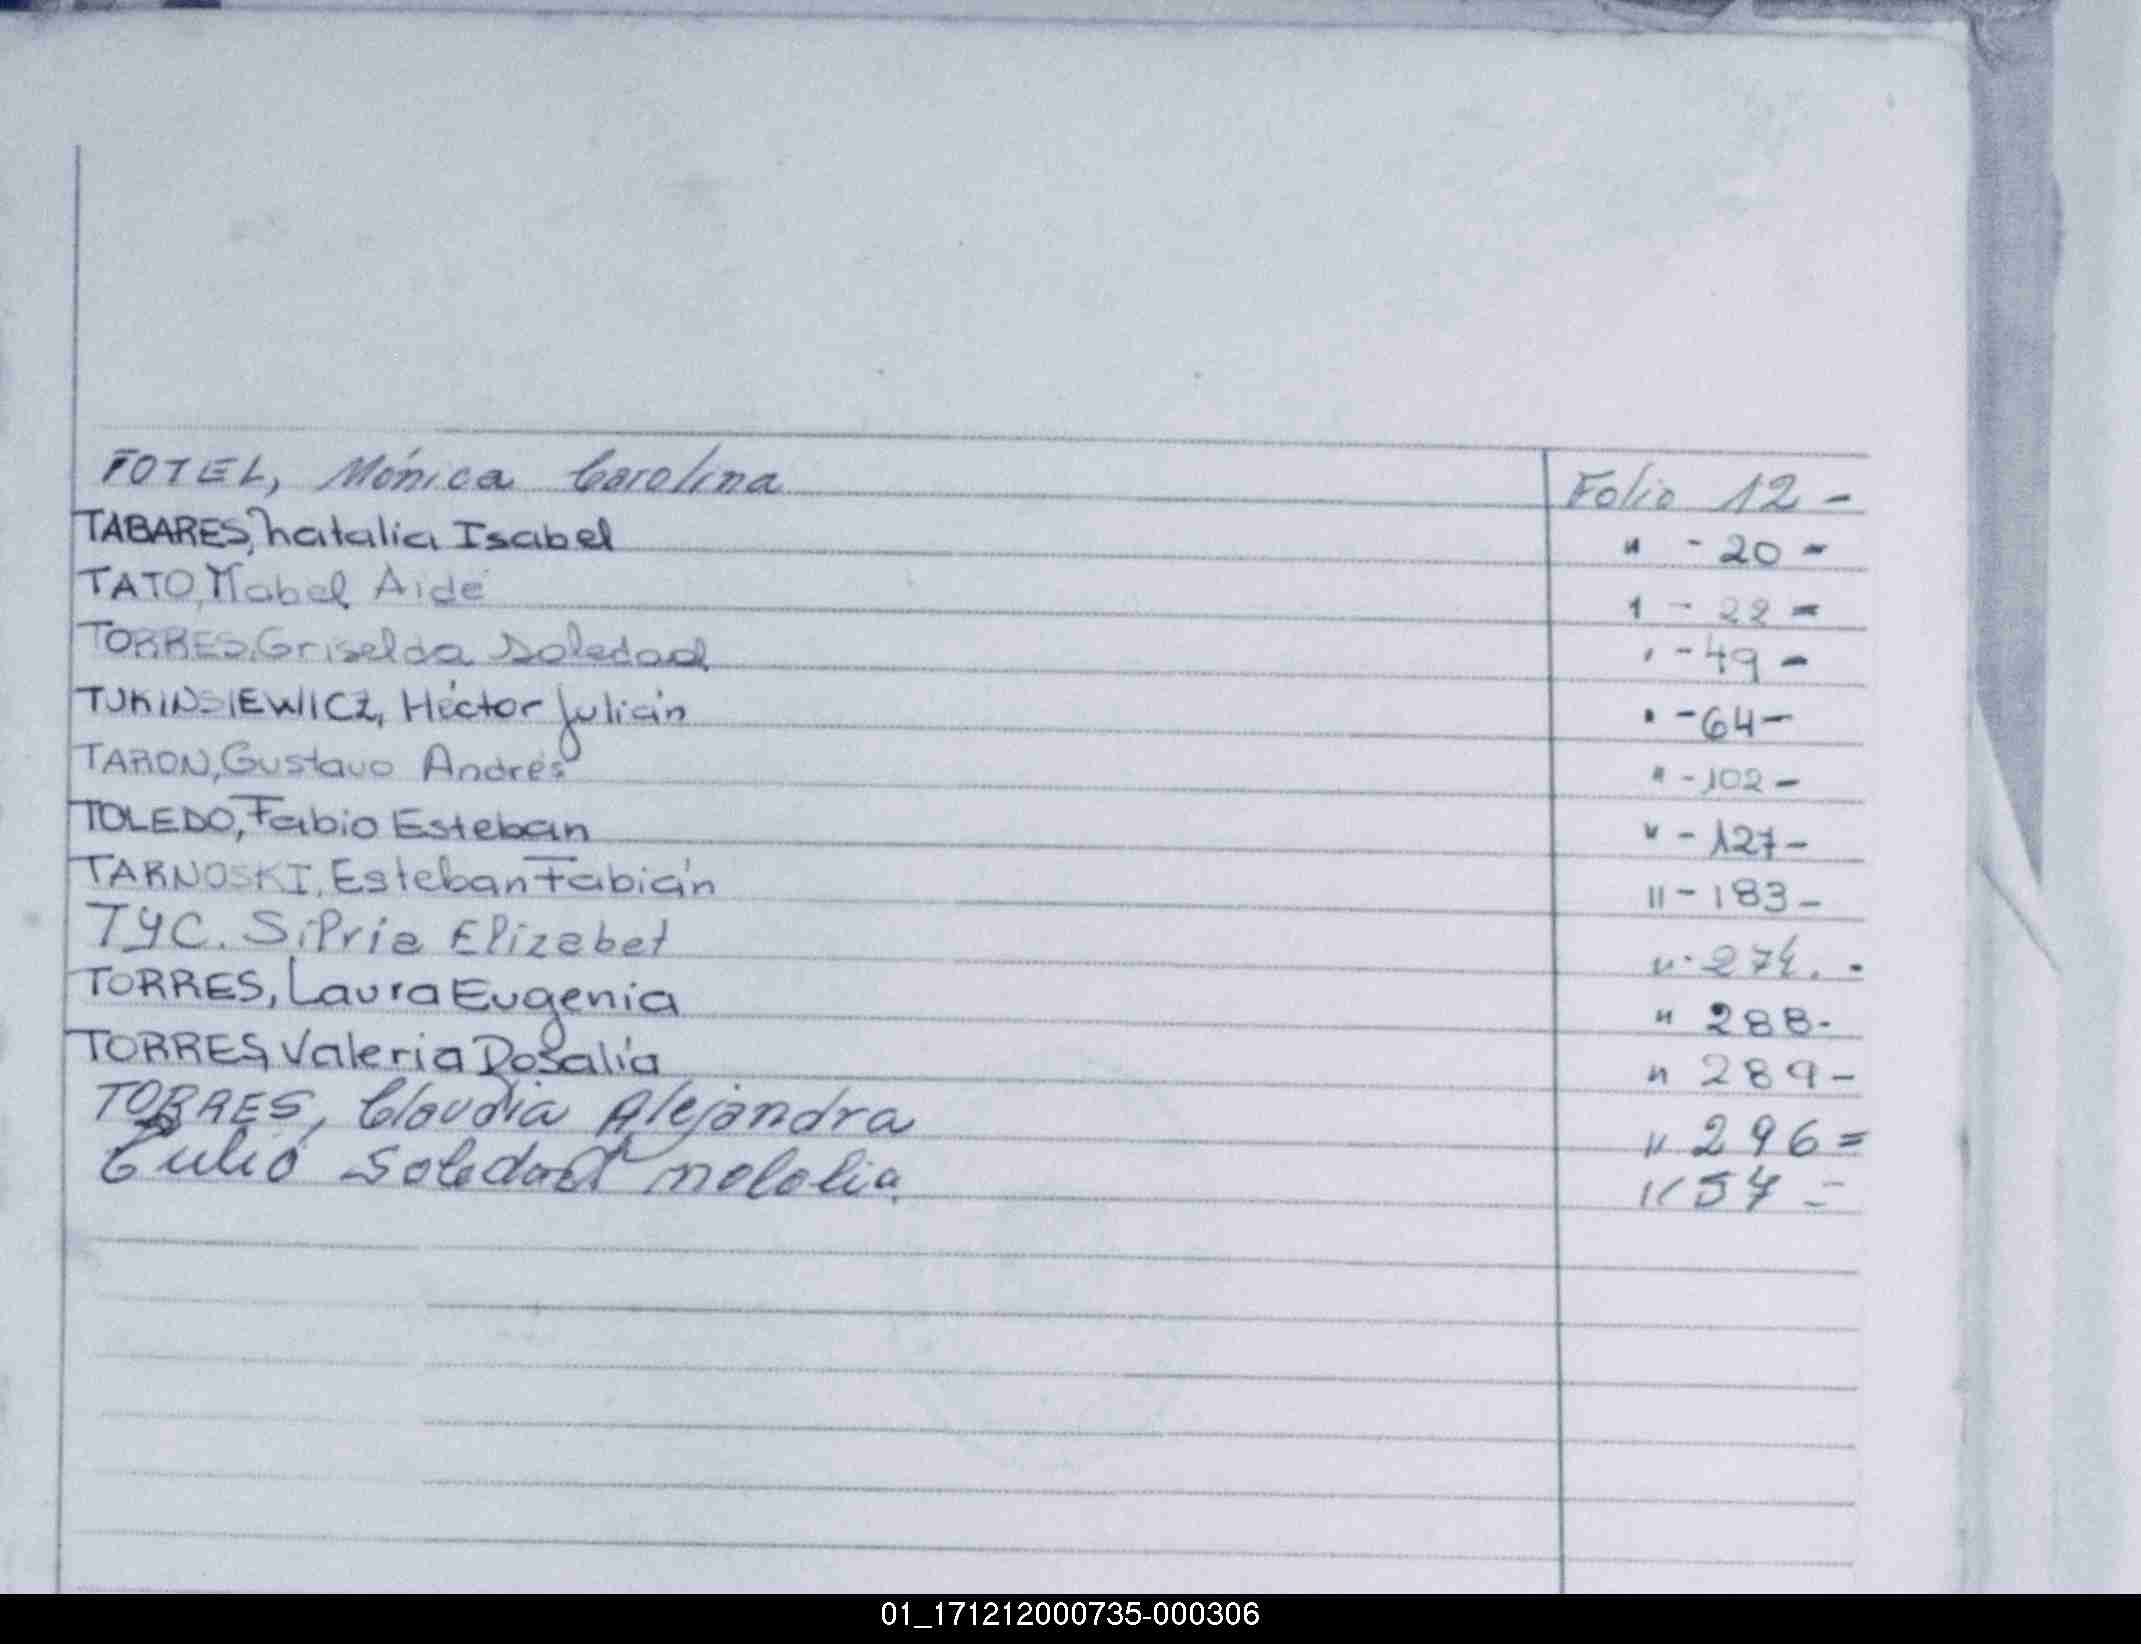 TOTEL, Mónica Carolina Folio 12 -
TABARES, Natalia Isabel " - 20 -
TATO, Mabel Aidé " - 22 -
TORRES, Griselda Soledad " - 49 -
TUKINSIEWICZ, Héctor Julián " - 64 -
TARON, Gustavo Andrés " - 102 -
TOLEDO, Fabio Esteban " - 127 -
TARNOSKI, Esteban Fabián " - 183 -
TYC. Silpria Elizabet " - 274. -
TORRES, Laura Eugenia " 288 -
TORRES, Valeria Rosalía " 289 -
TORRES, Claudia Alejandra " 296 =
Tulio Soledad Natalia " 57 =
01_171212000735-000306